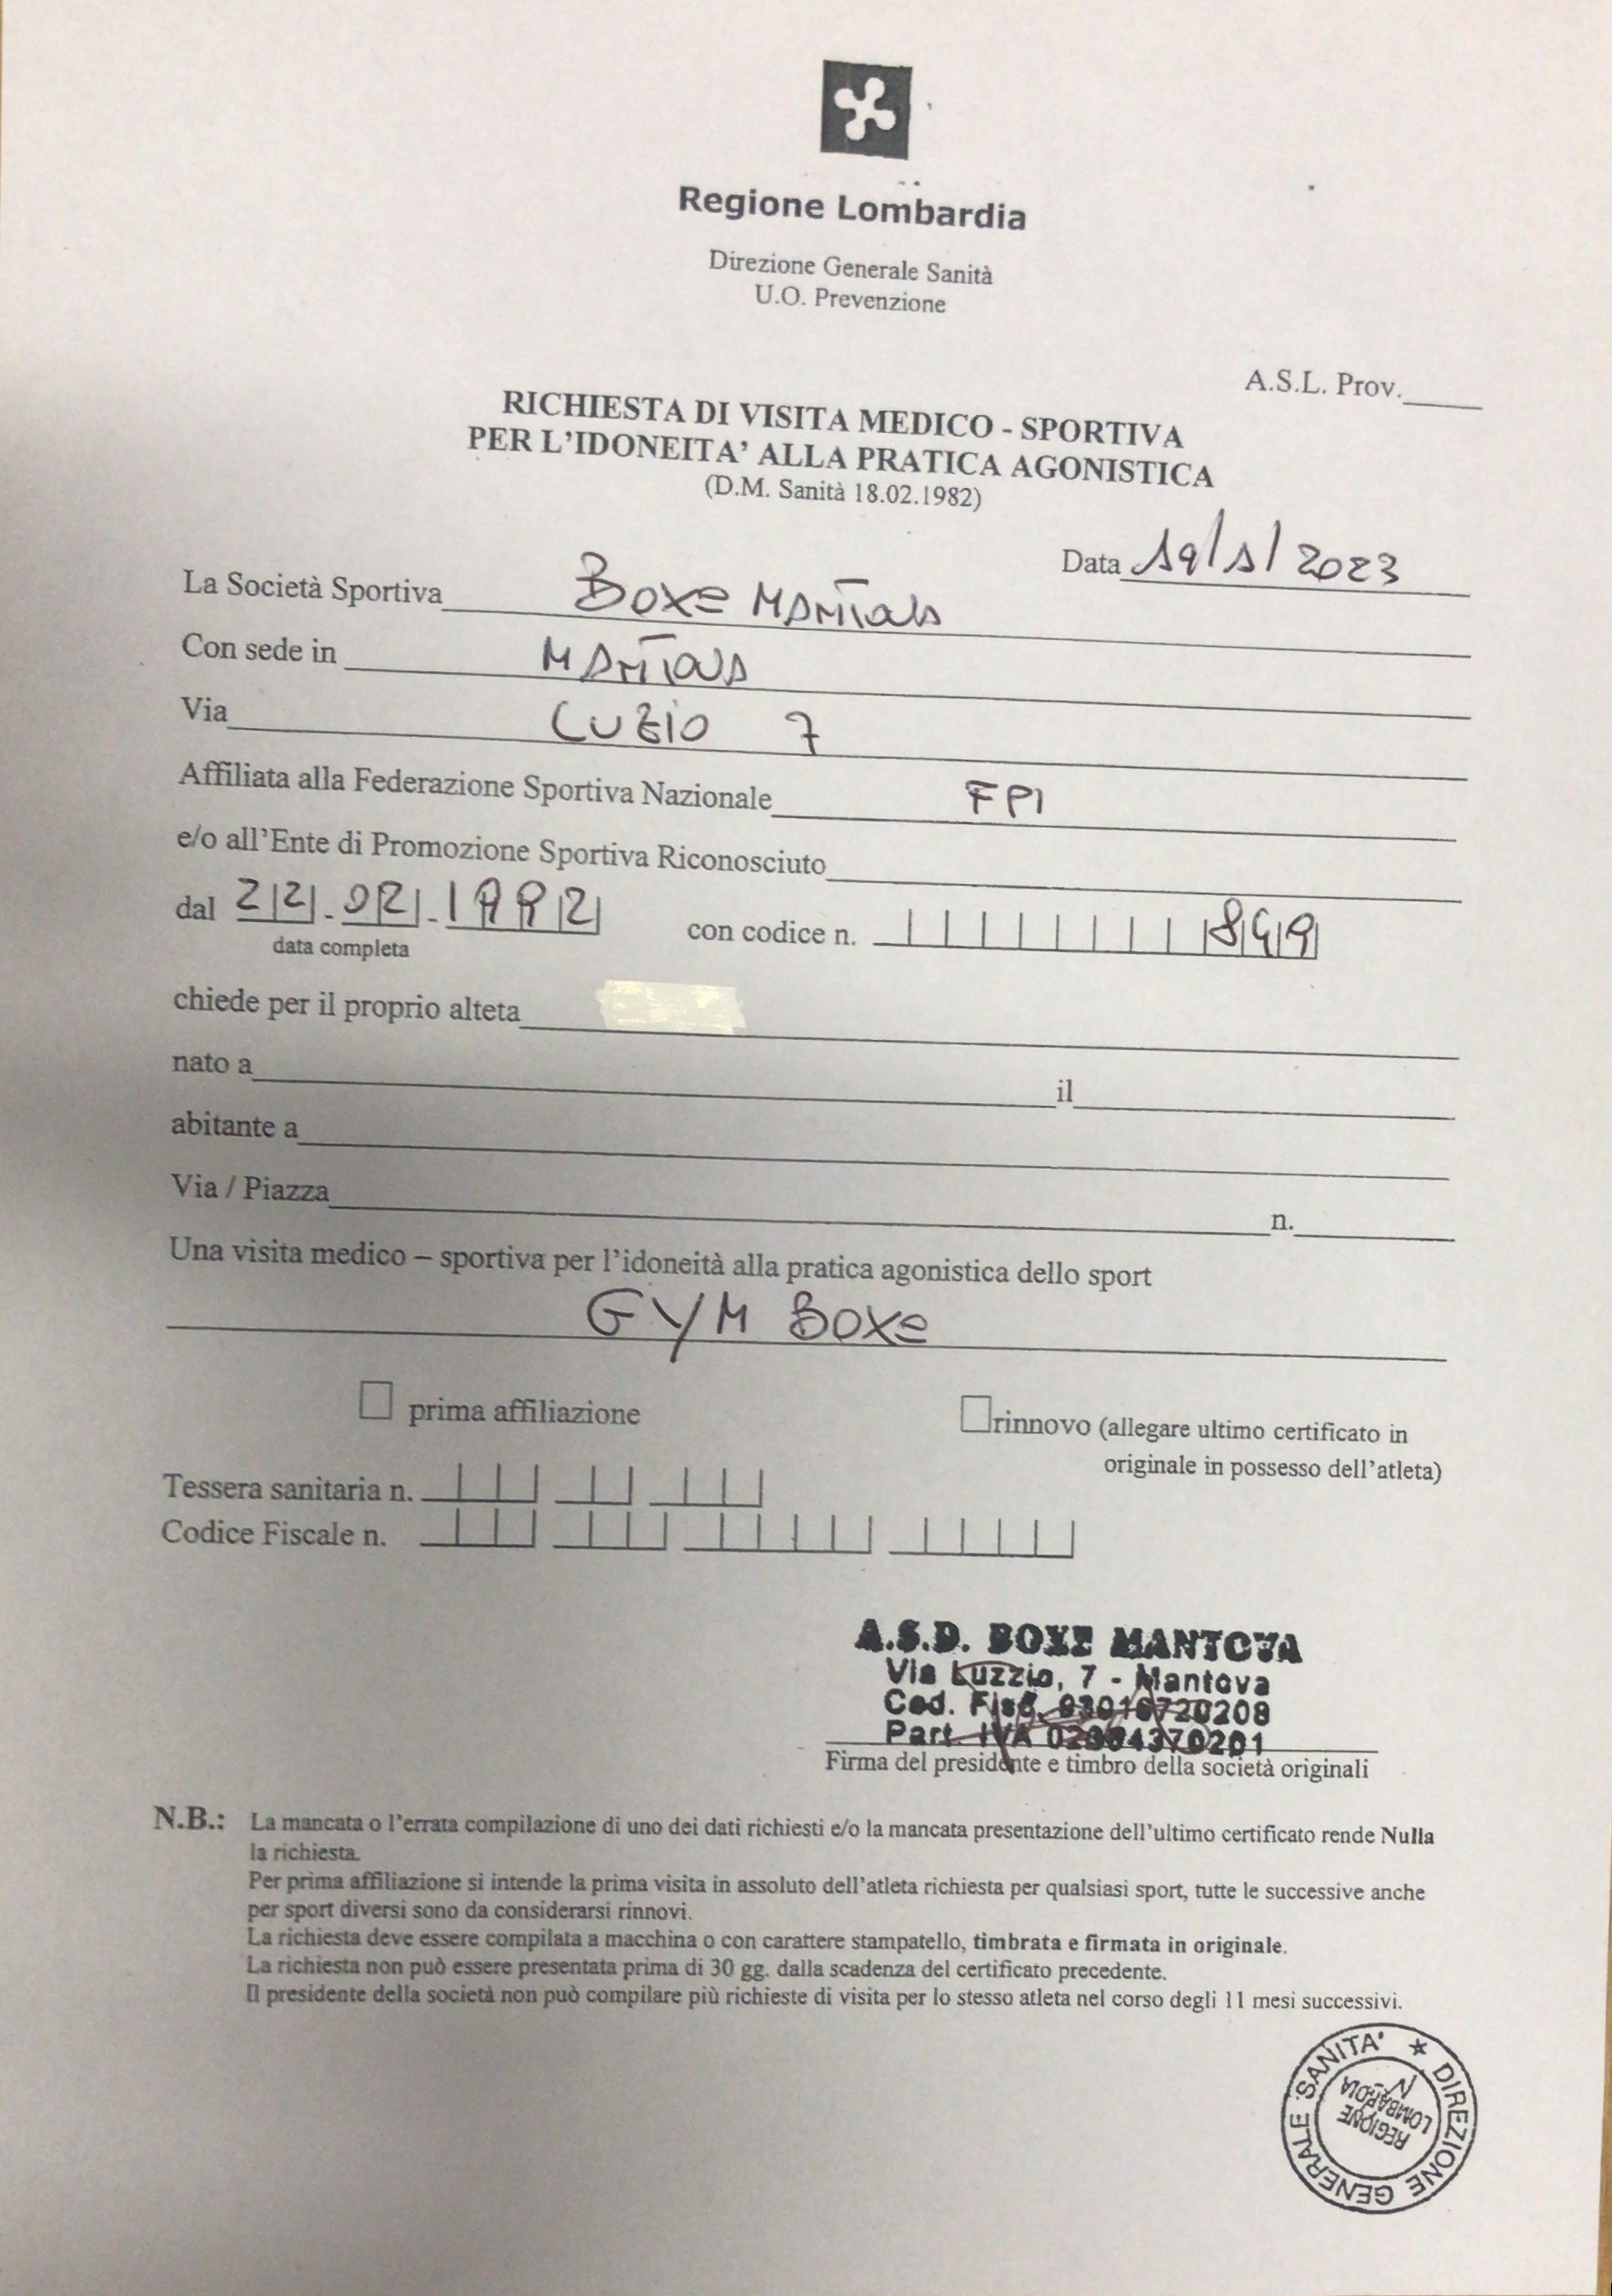 Regione Lombardia
Direzione Generale Sanità
U.O. Prevenzione
A.S.L. Prov.
RICHIESTA DI VISITA MEDICO - SPORTIVA
PER L'IDONEITA' ALLA PRATICA AGONISTICA
(D.M. Sanità 18.02.1982)
Data 19/1/2023
La Società Sportiva Boxe Mantova
Con sede in Mantova
Via LUZIO 7
Affiliata alla Federazione Sportiva Nazionale FPI
e/o all'Ente di Promozione Sportiva Riconosciuto
dal 22.02.1992 con codice n. 849
data completa
chiede per il proprio alteta
nato a il
abitante a
Via / Piazza n.
Una visita medico – sportiva per l'idoneità alla pratica agonistica dello sport
GYM BOXE
prima affiliazione
rinnovo (allegare ultimo certificato in
originale in possesso dell'atleta)
Tessera sanitaria n.
Codice Fiscale n.
A.S.D. BOXE MANTOVA
Via Luzzio, 7 - Mantova
Cod. Fisc.
Part. IVA
Firma del presidente e timbro della società originali
N.B.: La mancata o l'errata compilazione di uno dei dati richiesti e/o la mancata presentazione dell'ultimo certificato rende Nulla
la richiesta.
Per prima affiliazione si intende la prima visita in assoluto dell'atleta richiesta per qualsiasi sport, tutte le successive anche
per sport diversi sono da considerarsi rinnovi.
La richiesta deve essere compilata a macchina o con carattere stampatello, timbrata e firmata in originale.
La richiesta non può essere presentata prima di 30 gg. dalla scadenza del certificato precedente.
Il presidente della società non può compilare più richieste di visita per lo stesso atleta nel corso degli 11 mesi successivi.
DIREZIONE GENERALE SANITA' *
REGIONE
LOMBARDIA